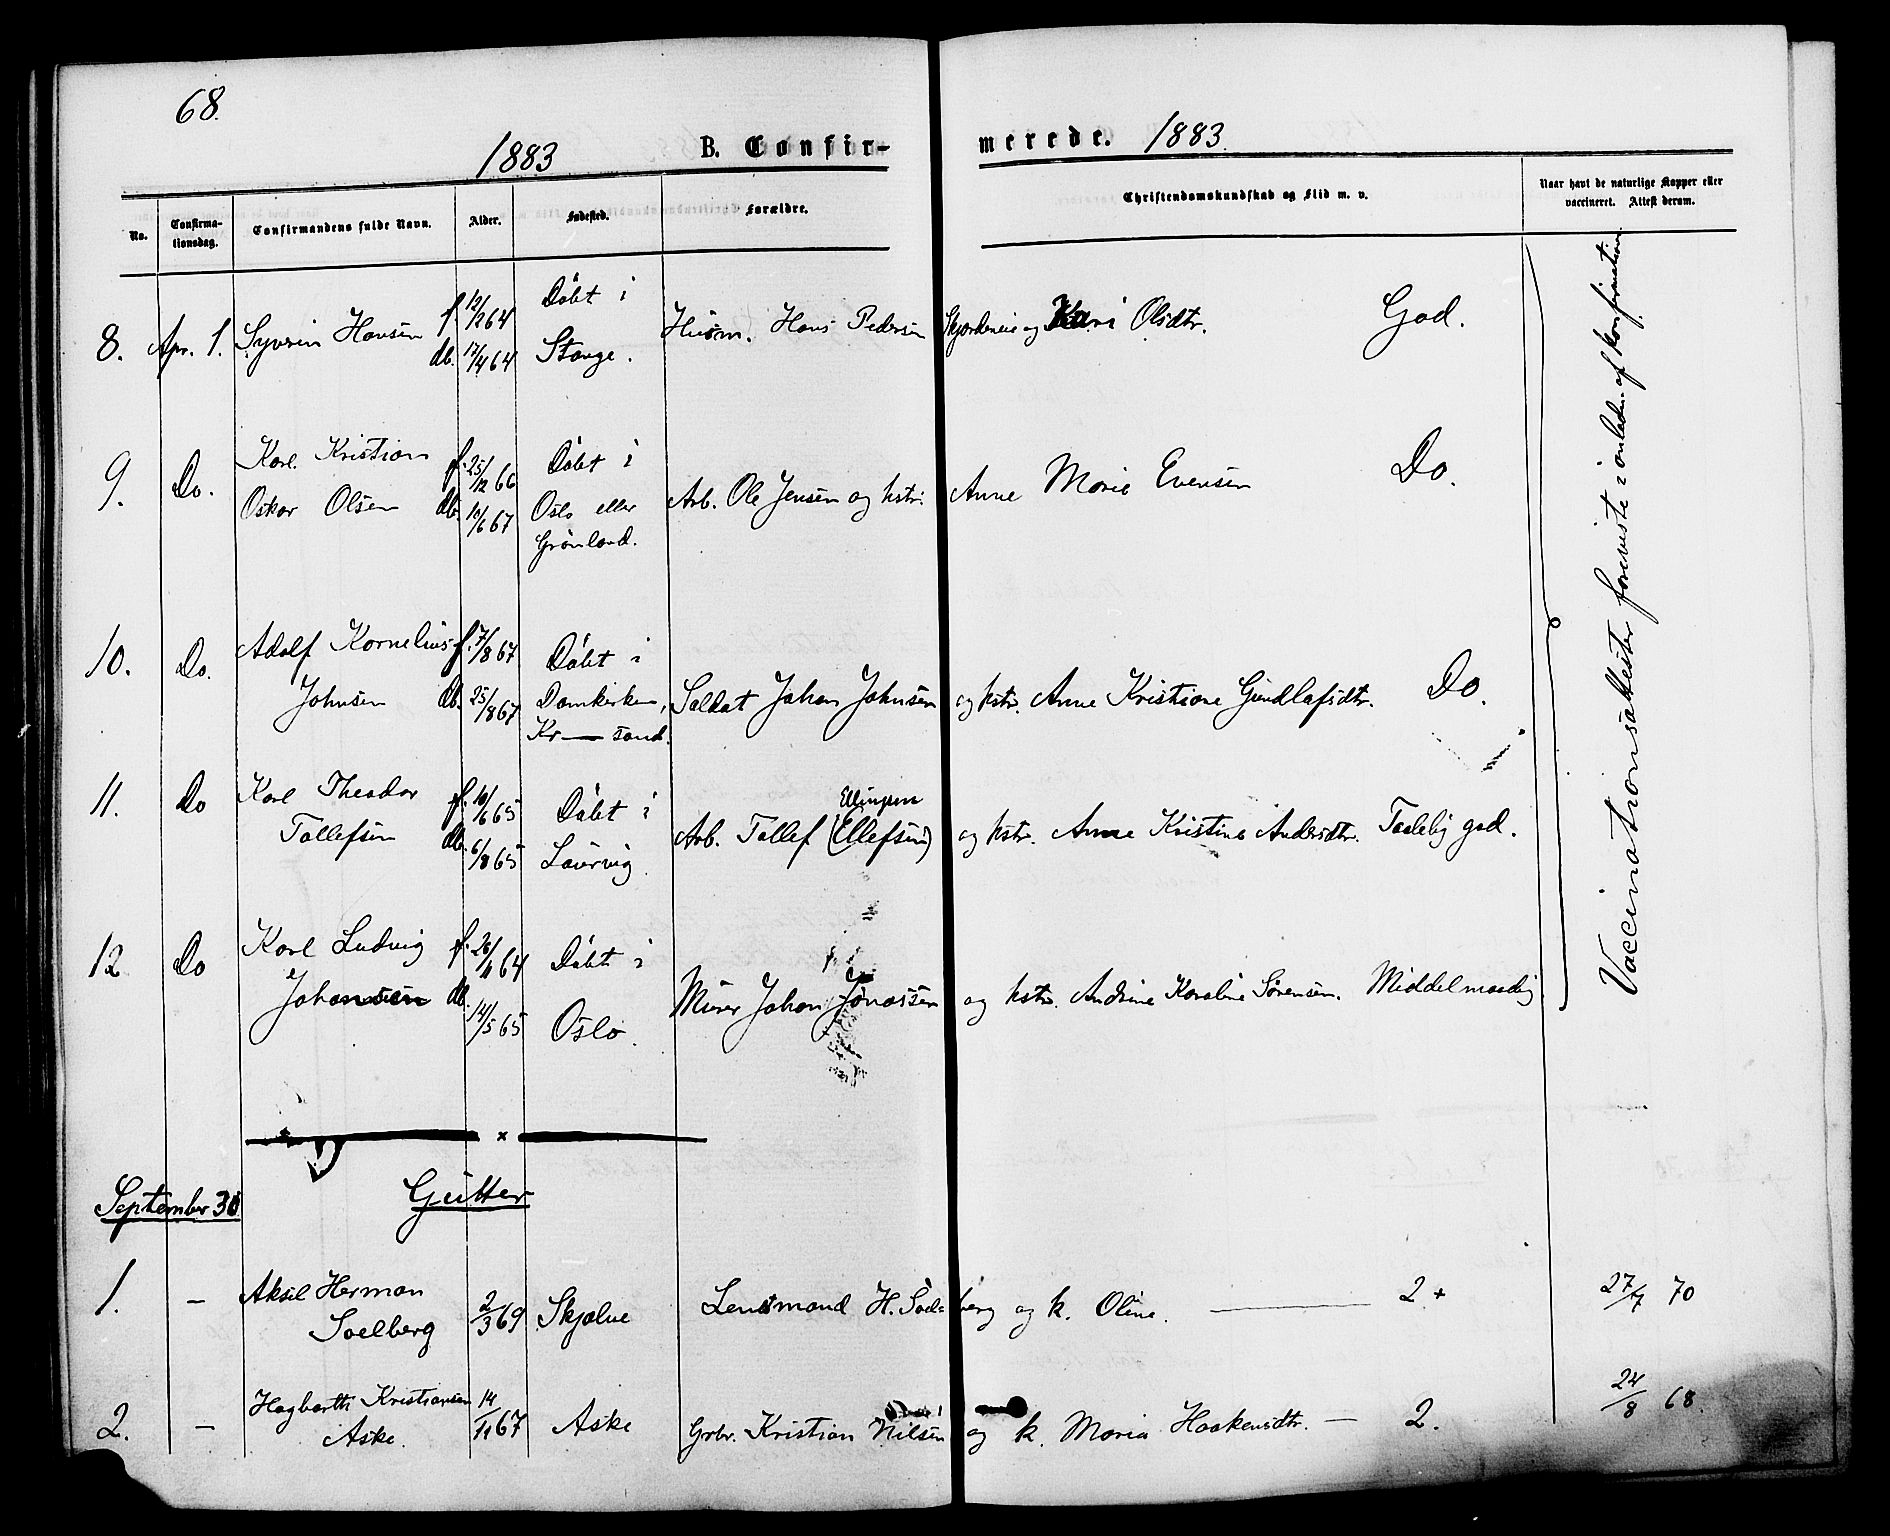 68.
1883 B. Confir- merede. 1883.
No. Confirma-tionsdag. Confirmandens fulde Navn. Alder. Fødested. Forældre. Christendomskundskab og Flid m. v. Naar havt de naturlige Kopper eller vaccineret. Attest derom.
8. Apr. 1. Syvrin Hansen f. 12/12 64 Døbt i Husm. Hans Pedersen og Kari Olsdtr. God.
db. 17/4 64 Stange.
9. Do. Karl Kristian f. 25/12 66 Døbt i
Oskar Olsen db. 10/6 67 Oslo eller Arb. Ole Jensen og hstr. Anne Marie Evensen Do.
Grønland.
10. Do. Adolf Kornelius f. 7/8 67 Døbt i
Johnsen db. 25/8 67 Domkirken, Soldat Johan Johnsen og hstr. Anne Kristiane Gundlafsdtr. Do.
Kr — sand.
11. Do Karl Theodor f. 10/6 65 Døbt i Ellingsen
Tollefsen db. 6/8 65 Laurvig. Arb. Tollef (Ellefsen) og hstr. Anne Kristine Andersdtr. Taalelig god.
12 Do Karl Ludvig f. 26/11 64 Døbt i
Johansen db. 14/5 65 Oslo. Murer Johan Jonassen og hstr. Andrine Karoline Sørensen. Middelmaadig
Vaccinationsattester foreviste i anledn. af konfirmation.
September 30 Gutter
1. — Aksel Herman 2/3 69 Skjølve Lensmand H. Soelberg og k. Oline. — 2+ 27/7 70
Soelberg
2. — Hagbarth Kristiansen 14/11 67 Aske Grbr. Kristian Nilsen og k. Maria Haakensdtr. — 2. 24/8 68.
Aske.